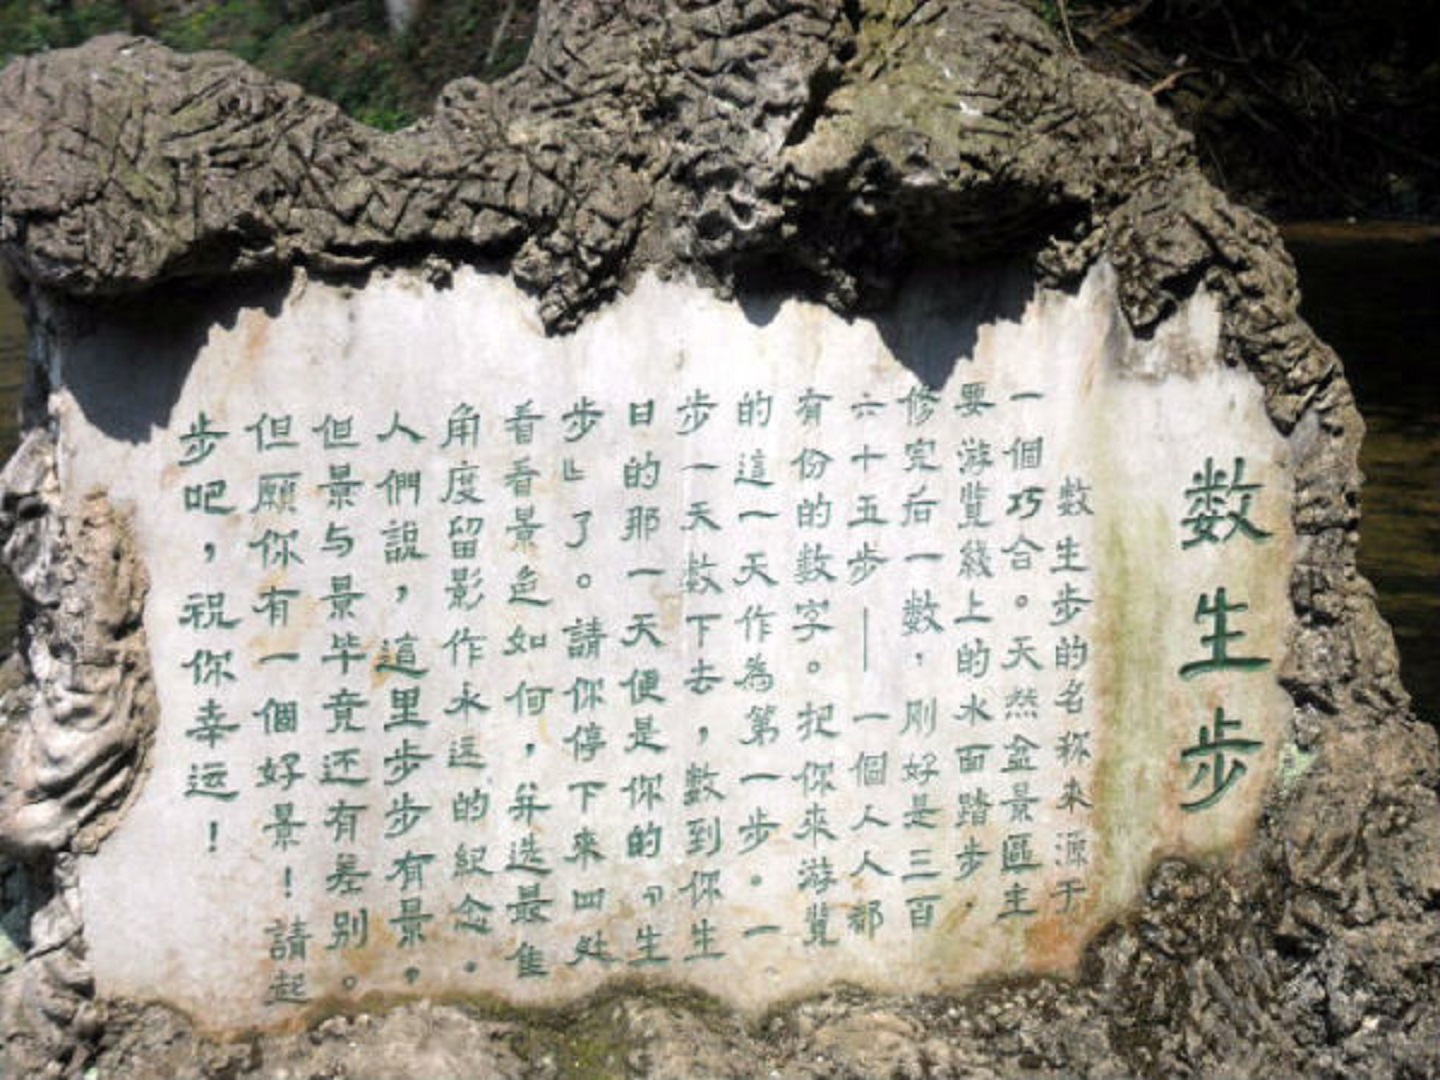 数生步
数生步的名称来源于
一個巧合。天然盆景區主
要游覽綫上的水面踏步，
修完后一數，刚好是三百
六十五步——一個人人都
有份的数字。把你來游覽
的這一天作為第一步。一
步一天数下去，數到你生
日的那一天便是你的『生
步』了。請你停下來四处
看看景色如何，并选最佳
角度留影作永远的紀念。
人們說，這里步步有景，
但景与景毕竟还有差别。
但願你有一個好景！請起
步吧，祝你幸运！